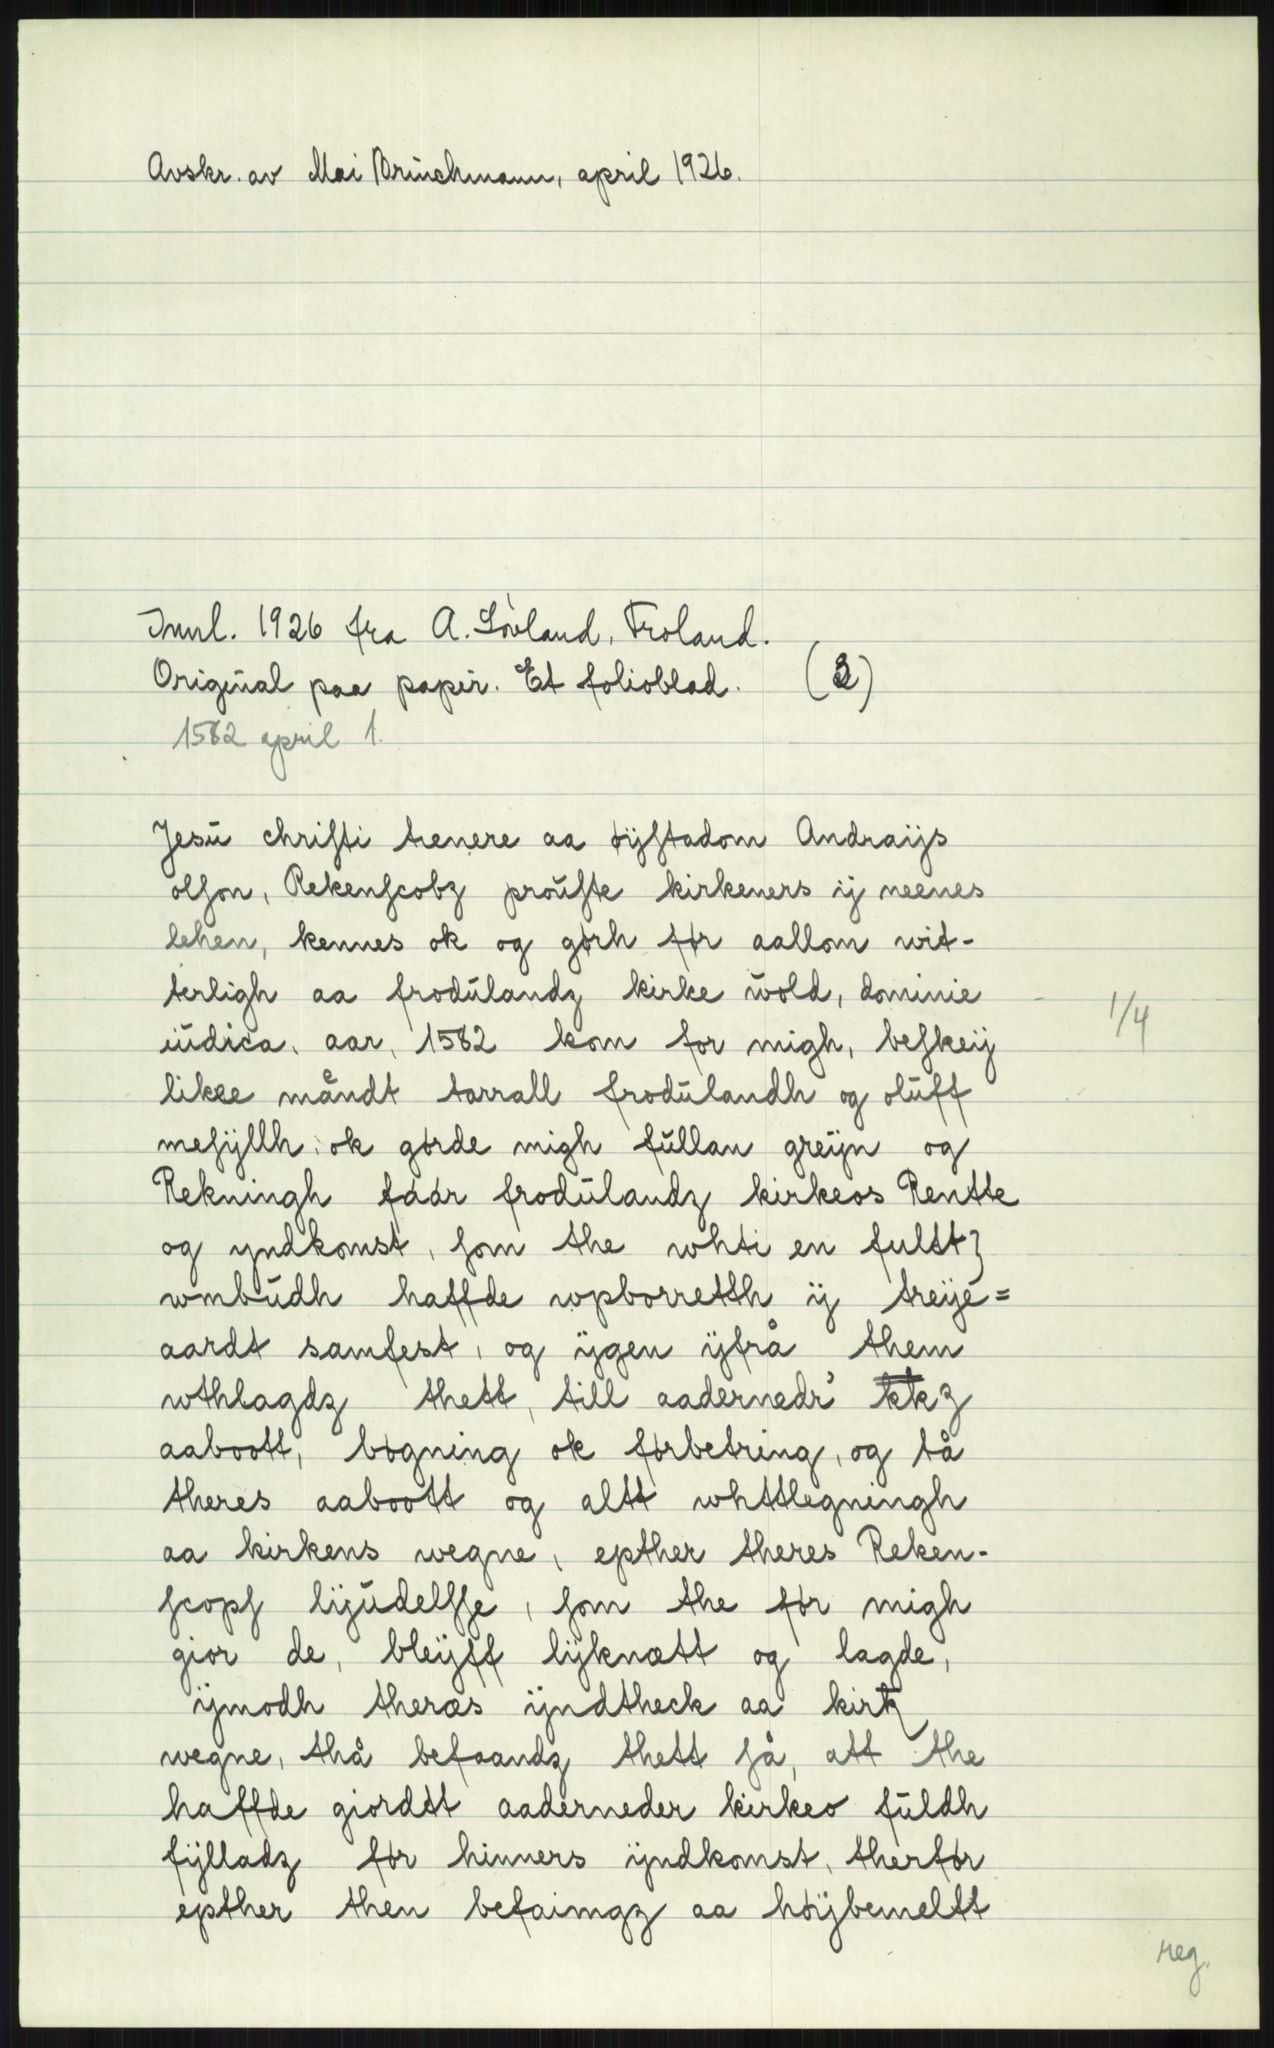 Avskr. av Mai Brinchmann, april 1926.
Innl. 1926 fra A. Løvland, Froland.
Original paa papir. Et folioblad. (2)
1562 april 1.
Jesu chriſti tienere aa øyſtadom Andraijs
olſon, Rekenſcobz prouſte kirkeners ij neenes
lehen, kennes ok og gørh før aallom wit-
terligh aa frodulandz kirke wold, dominie
iudica, aar, 1562 kom for migh, beſkeij
1/4
likee måendt tarrall frodulandh og oluff
meſÿllh, ok gørde migh fullan greÿn og
Rekningh føør frodulandz kirkeos Rentte
og yndkomst, ſom the whti en fultt
wmbudh haffde wpborretth ij treÿe=
aardt samfest, og ÿgen ÿfrå them
wthlagdz thett, till aadernedr kkz
aaboott, bøgning ok førbetring, og så
theres aaboott og altt whttlegningh
aa kirkens wegne, epther theres Reken-
ſcopſ lijudelſſe, ſom the før migh
gior de, bleÿff lÿknætt og lagde,
ÿmodh theræs ÿndtheck aa kirkz
wegne, thå befaandz thett ſå, att the
haffde giordtt aaderneder kirkeo fuldh
fÿlladz før hinners ÿndkomst, therfør
epther then befaimgz aa høÿbemeltt
reg.